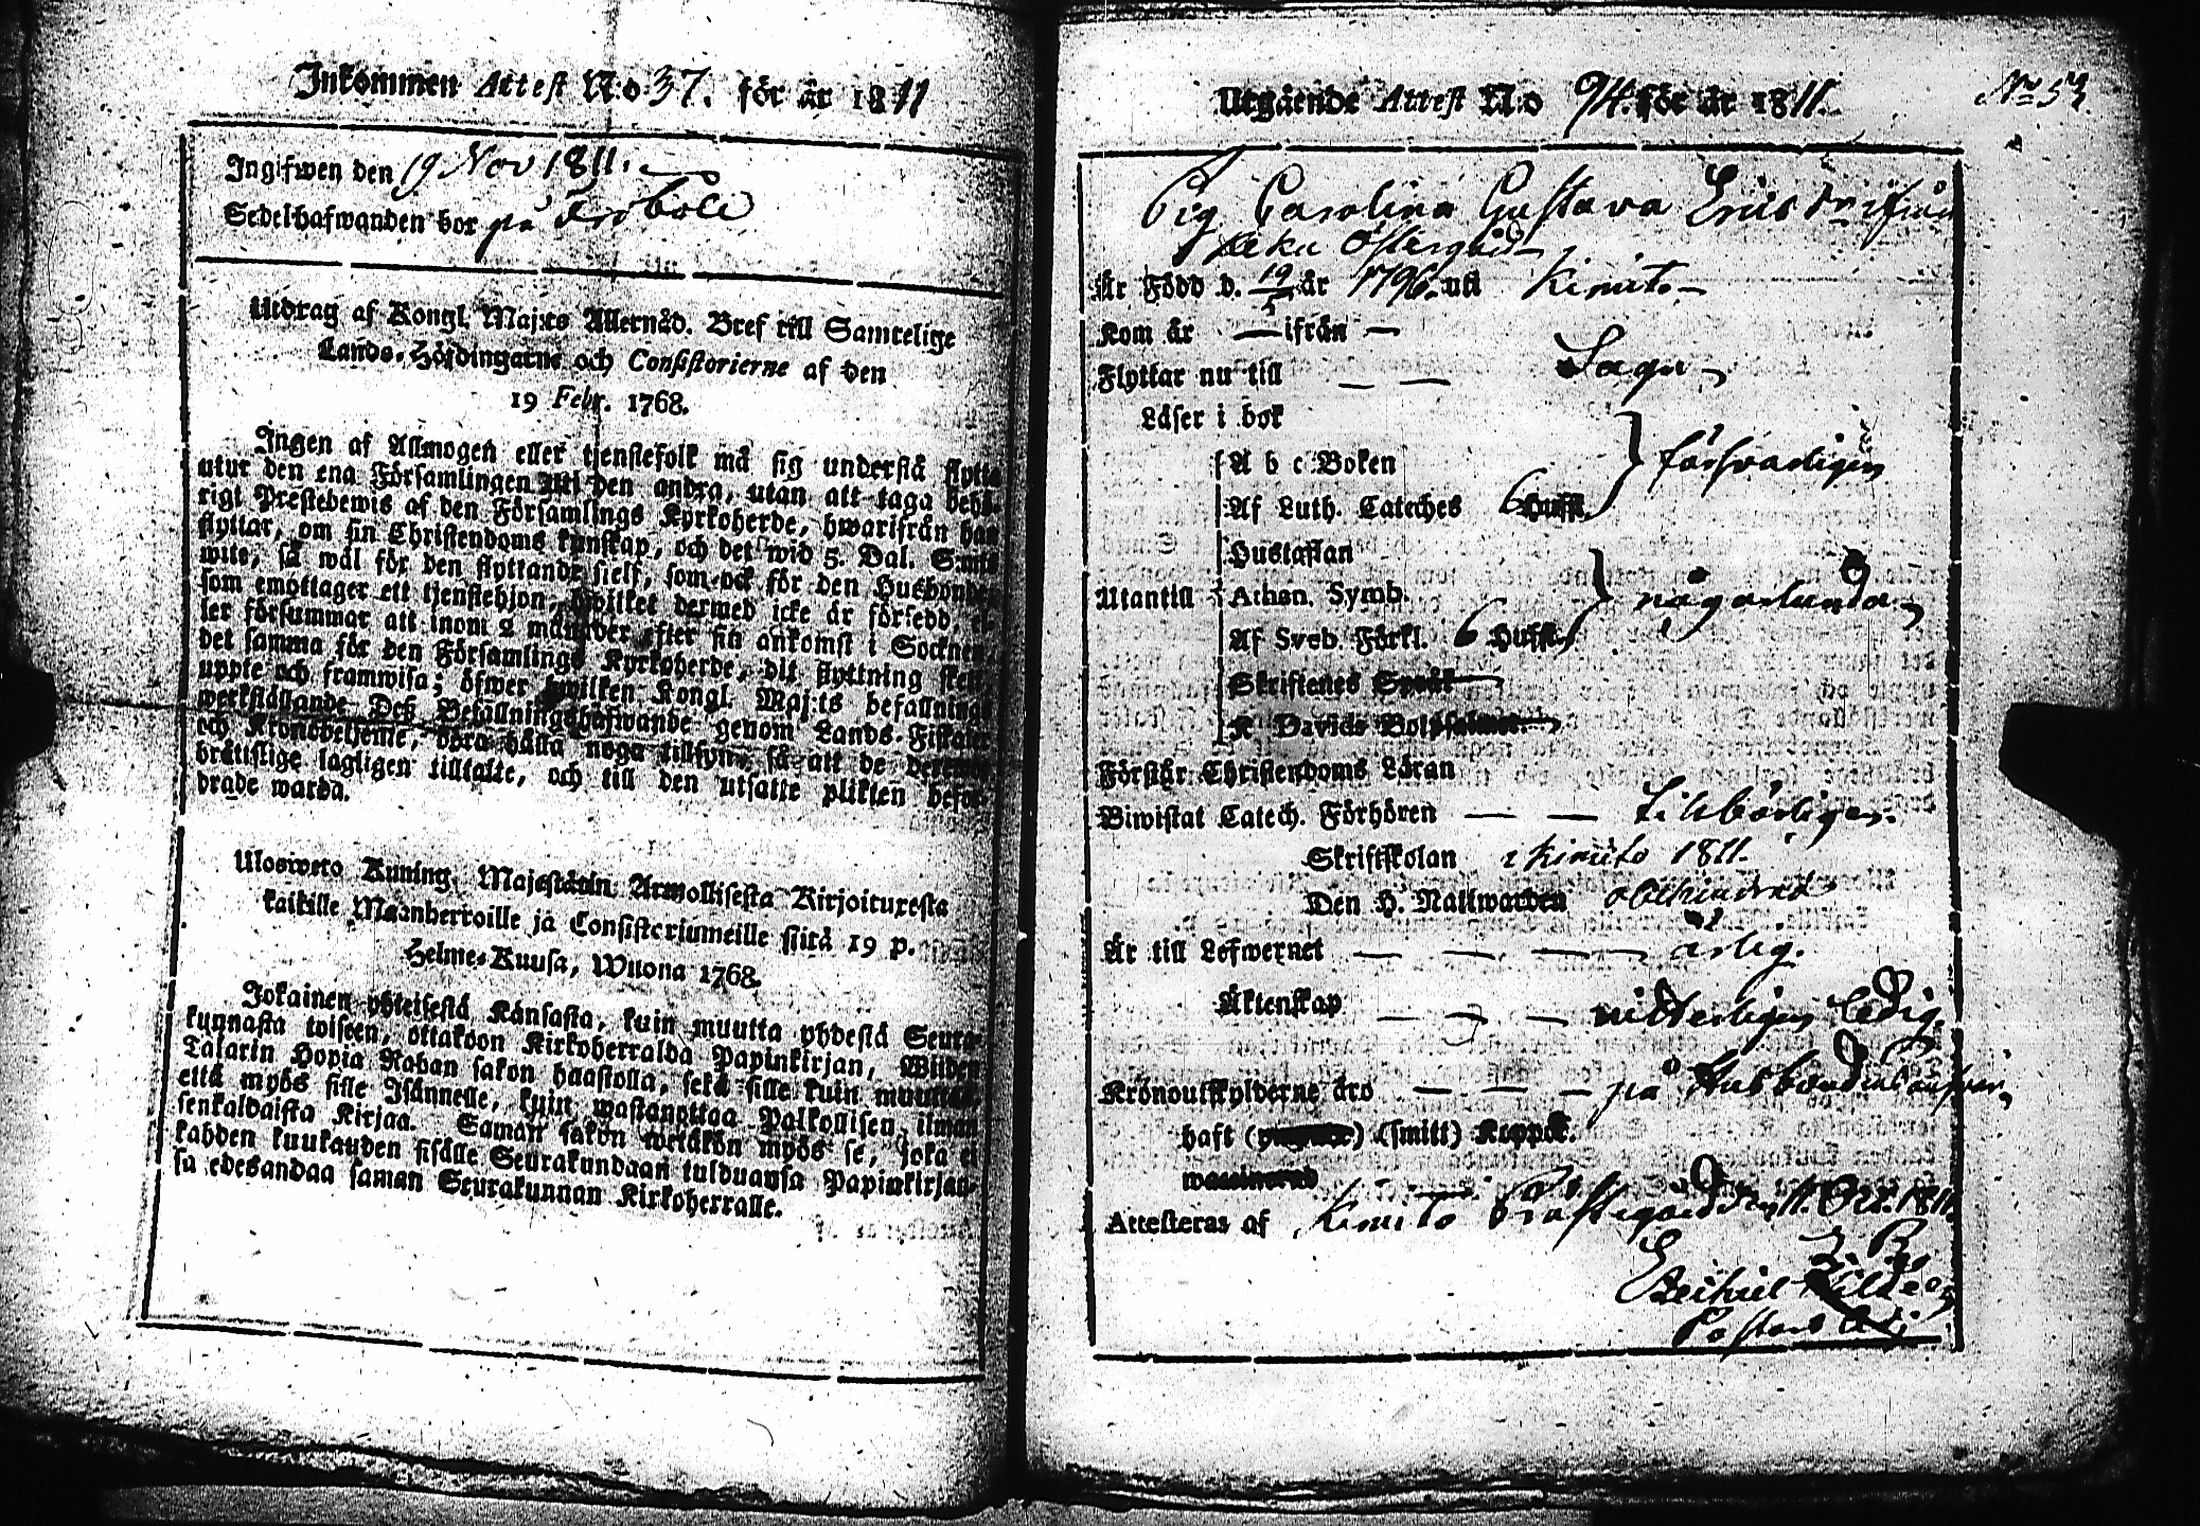 Inkommen Attest N:o 37. för år 1811
Ingifwen den 19 Nov 1811.
Sedelhafwanden bor på
Utdrag af Kongl. Maj:ts Allernåd. Bref till Samtelige
Lands-Höfdingarne och Consistorierne af den
19 Febr. 1768.
Ingen af Allmogen eller tjenstefolk må sig understå flytta
utur den ena Församlingen till den andra, utan att taga behö-
rigt Prestebewis af den Församlings Kyrkoherde, hwarifrån han
flyttar, om sin Christendoms kunskap, och det wid 5. Dal. S:mts
wite, så wäl för den flyttande sjelf, som ock för den Husbonde,
som emottager ett tjenstehjon, hwilket dermed icke är försedd, el-
ler försummar att inom 2 månader efter sin ankomst i Socknen,
det samma för den Församlings Kyrkoherde, dit flyttning sker,
uppte och framwisa; öfwer hwilken Kongl. Maj:ts befallnings
werkställande Deß Befallningshafwande genom Lands-Fiskaler
och Kronobetjente, böra hålla noga tillsyn, så att de deremot
bråttslige lagligen tilltalte, och till den utsatte plikten befor-
drade warda.
Uloswето Kuning. Majestätin Armollisesta Kirjoituxesta
kaikille Maanherroille ja Consistoriumeille siitä 19 p.
Helme-Kuusa, Wuona 1768.
Jokainen yhteisestä Kansasta, kuin muutta yhdestä Seura-
kunnasta toiseen, ottakoon Kirkoherralda Papinkirjan, Wiiden
Talarin Hopia Rahan sakon haastolla, sekä sille kuin muuttaa,
että myös sille Isännelle, kuin wastanottaa Palkollisen ilman
senkaldaista Kirjaa. Saman sakon wetäkön myös se, joka ei
kahden kuukauden sisälle Seurakundaan tulduansa Papinkirjan-
sa edesandaa saman Seurakunnan Kirkoherralle.
Utgående Attest N:o 94. för år 1811.
No 53
Pig Carolina Gustava Ericsdr ifrån
Östergård
Är Född d. 19/5 år 1796. uti Kimito
Kom år — ifrån —
Flyttar nu till — — Sagu
Läser i bok
A b c Boken
försvarligen
Af Luth. Cateches 6 Hufst.
Hustaflan
Utantill Athan. Symb. någorlunda
Af Sveb. Förkl. 6 Hufst.
Skriftenes Språk
K. Davids Botpsalmer
Förstår Christendoms Läran
Biwistat Catech. Förhören — — tillbörligen.
Skriftskolan i Kimito 1811.
Den H. Nattwarden obehindrad
Är till Lefwernet — — — — ärlig.
Äktenskap — — — witterligen ledig.
Kronoutskylderne äro — — — på
haft (smitt) Koppor.
Attesteras af Kimito Prästegård d. 11. Oct. 1811.